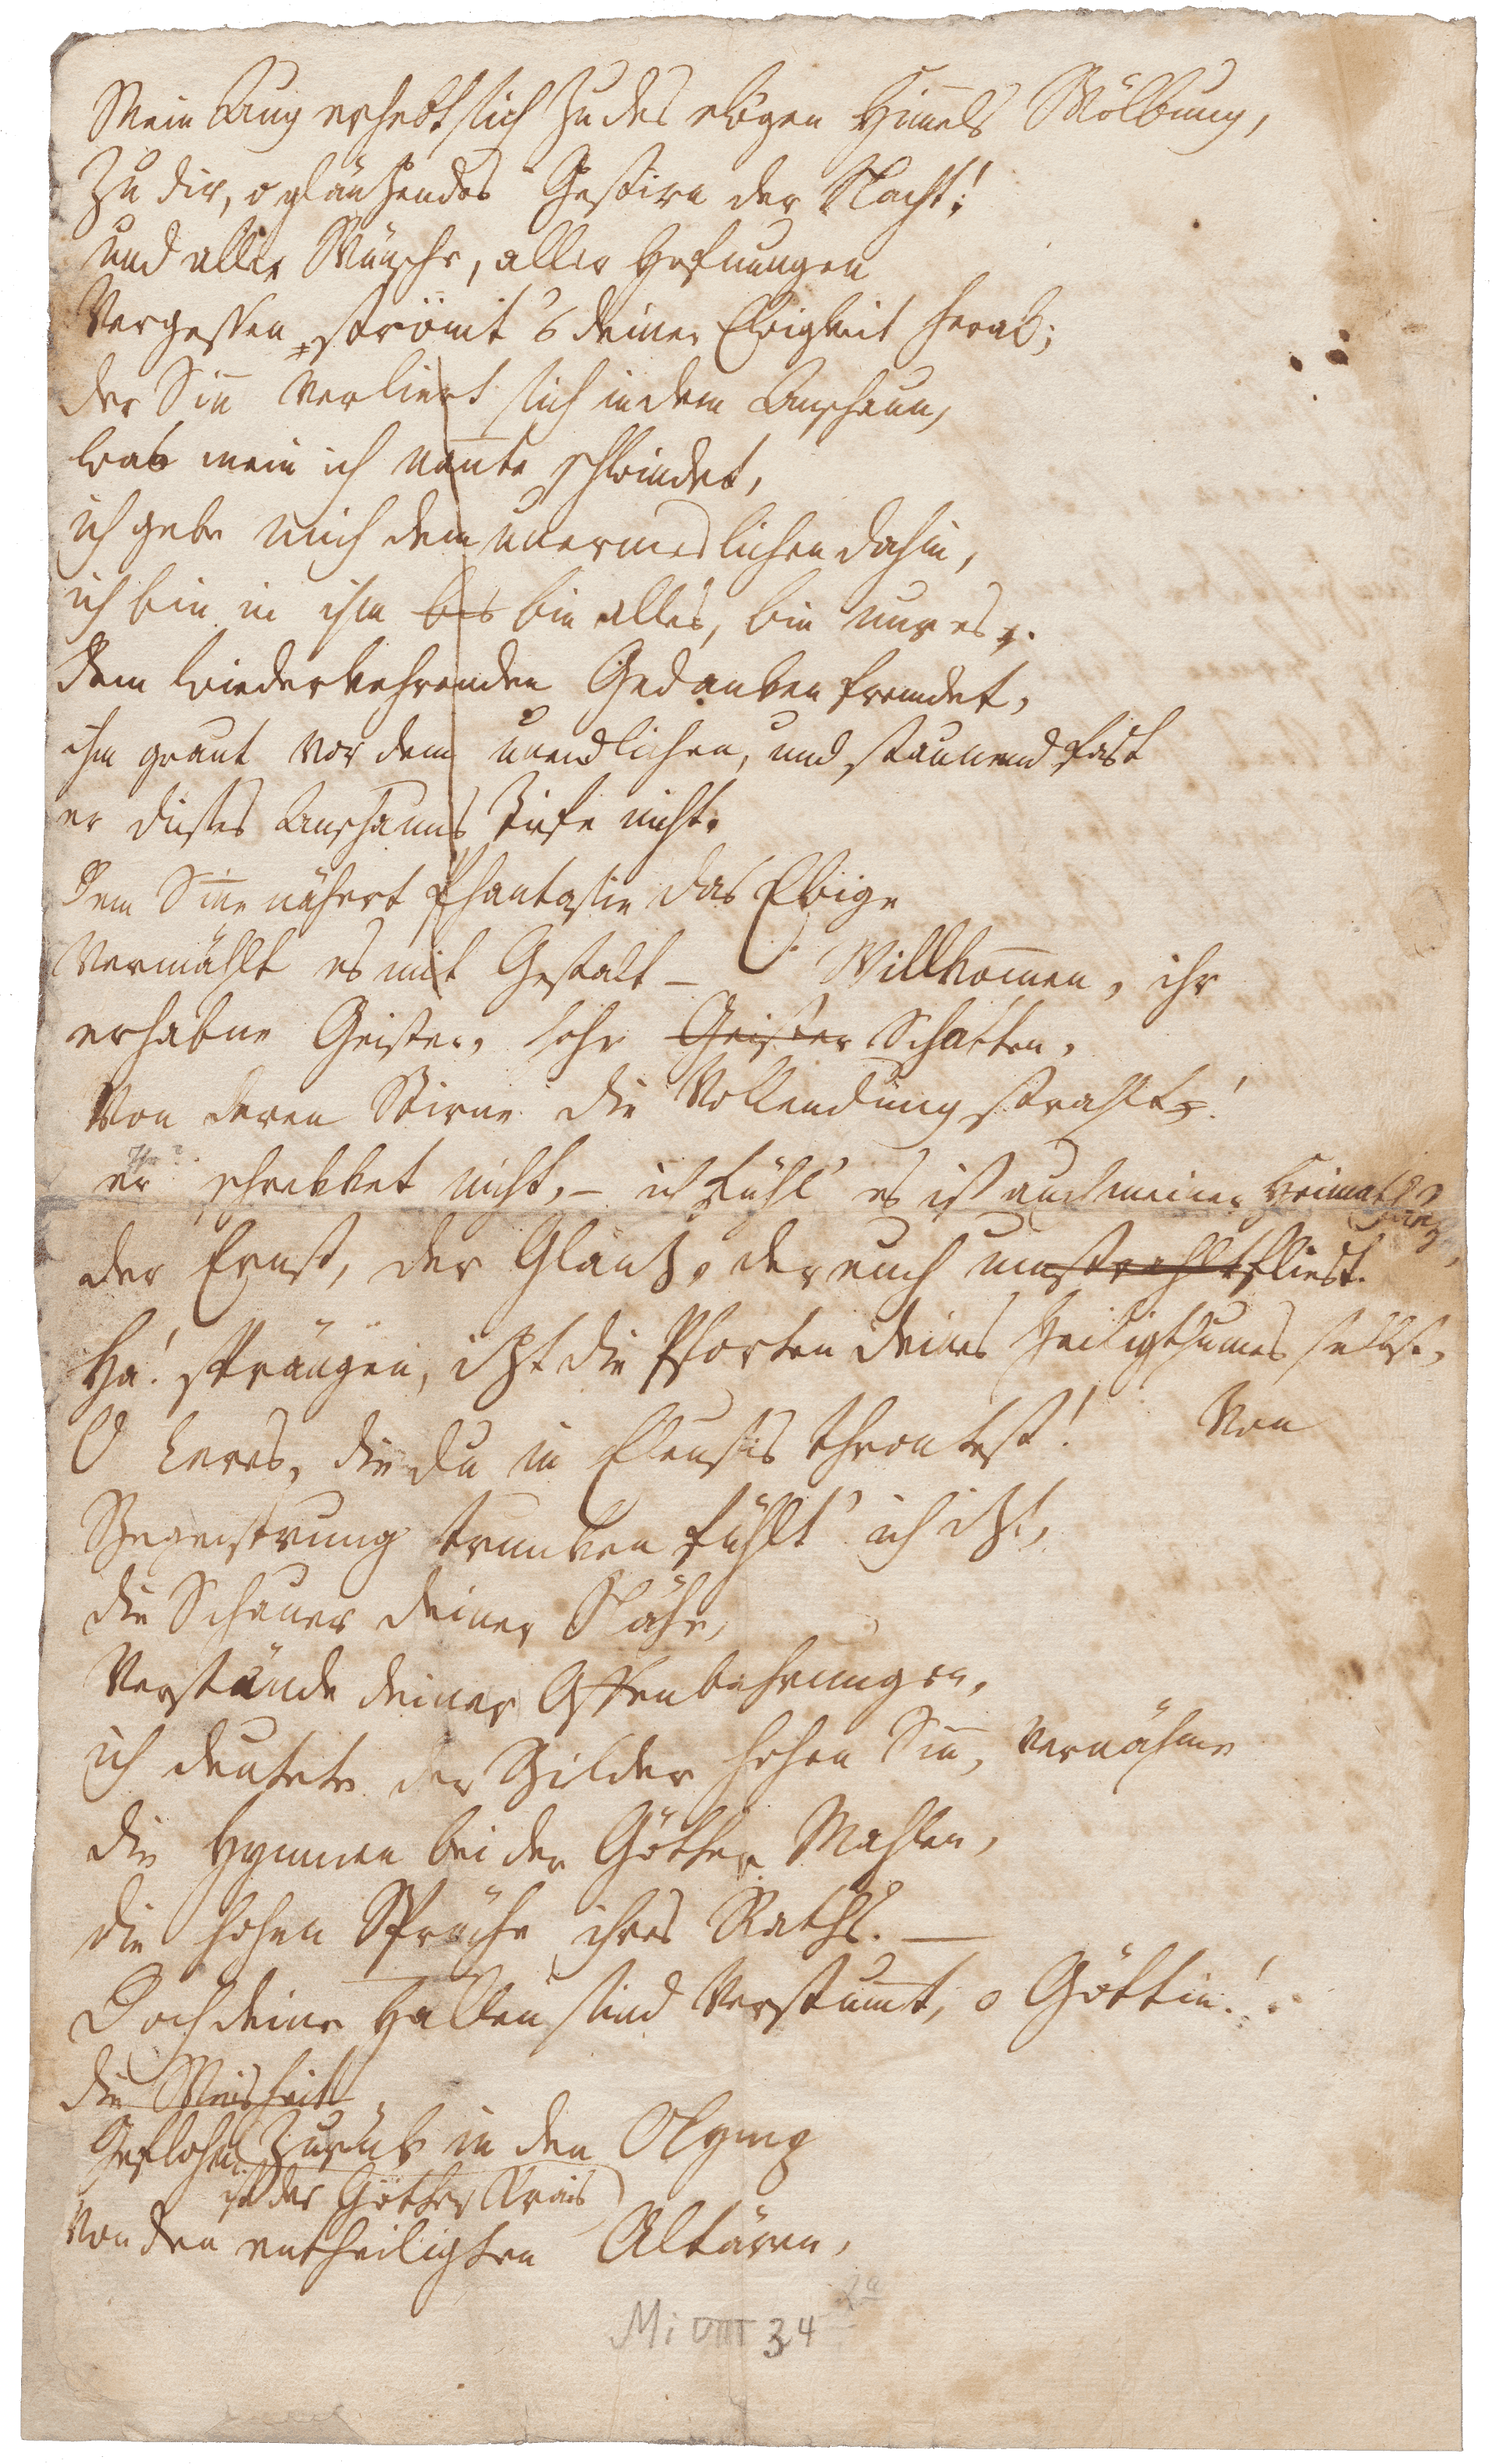 Mein Aug erhebt sich zu des ewgen Himmels Wölbung,
zu dir, o glänzendes Gestirn der Nacht!
und aller Wünsche, aller Hofnungen
Vergessen strömt 's deiner Ewigkeit herab;
der Sinn verliert sich in dem Anschaun,
was mein ich nannte schwindet,
ich gebe mich dem unermeslichen dahin,
ich bin in ihm bis bin alles, bin nur es.
Dem wiederkehrenden Gedanken fremdet,
ihm graut vor dem unendlichen, und staunend fast
er dieses Anschauns Tiefe nicht.
Dem Sinne nähert Phantasie das Ewige
Vermählt es mit Gestalt – Willkommen, ihr
erhabne Geister, hohe Geister Schatten,
Von deren Stirne die Vollendung strahlt!
er schrekket nicht, – ich fühl' es ist auch meine Heimat
der Ernst, der Glanz, der euch umstrahlt fliest.
Ha! sprängen, izt die Pforten deines Heiligthumes selbst,
O Ceres, die du in Eleusis throntest! Von
Begeistrung trunken fühlt' ich izt,
die Schauer deiner Nähe,
Verstände deiner Offenbahrungen,
ich deutete der Bilder hohen Sinn, vernähme
die Hymnen bei der Götter Mahlen,
die hohen Sprüche ihres Raths. —
Doch deine Hallen sind verstummt, o Göttin!
die Weisheit
Geflohen zurük in den Olymp
ist der Götter Krais
Von den entheiligten Altären,
Mi VIII 34